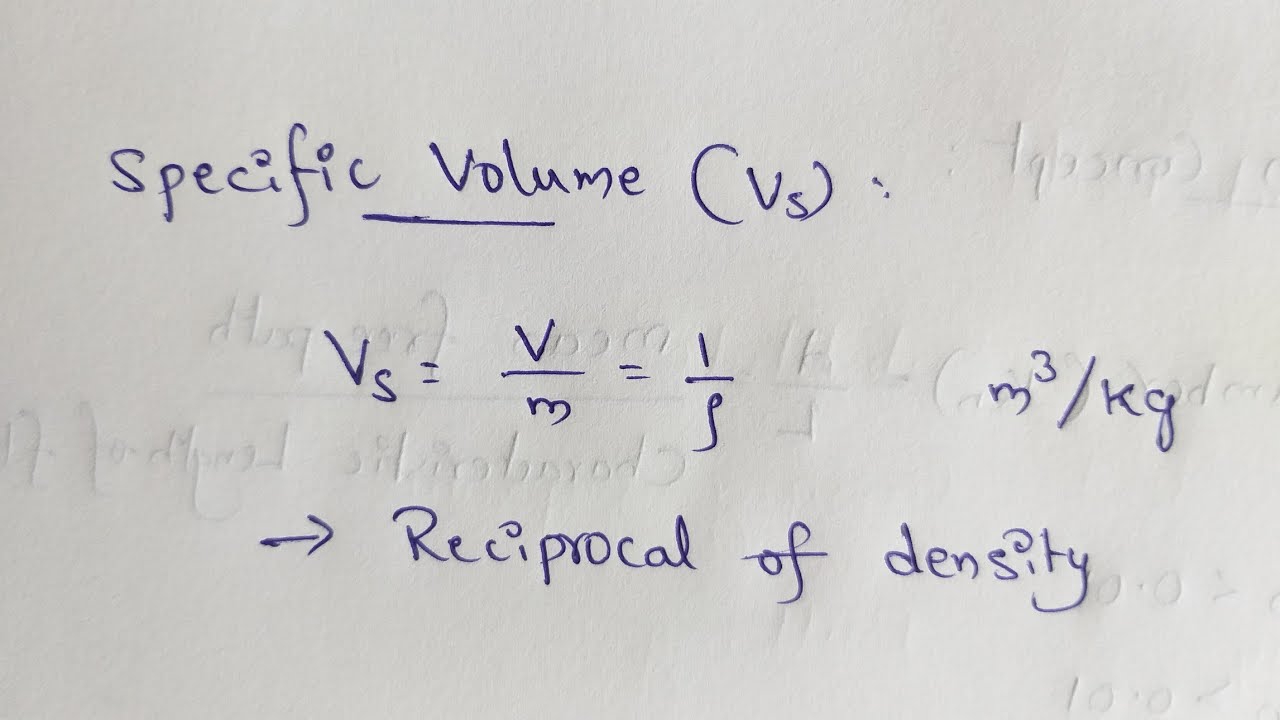 Specific Volume (Vs) :
Vs = V/m = 1/ρ m³/kg
→ Reciprocal of density